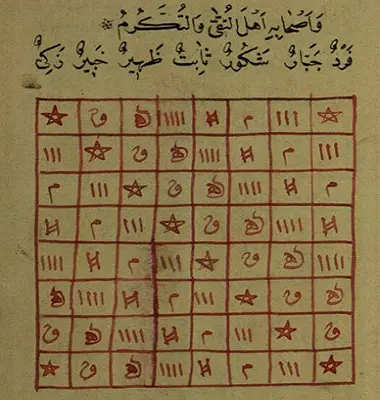 وَاَصْحَابِهِ اَهْلَ التُّقٰى وَالتَّكَرُّمُ
فَرْدٌ جَبَّارٌ شَكُورٌ ثَابِتٌ ظَهِيرٌ خَبِيرٌ زَكِىٌّ